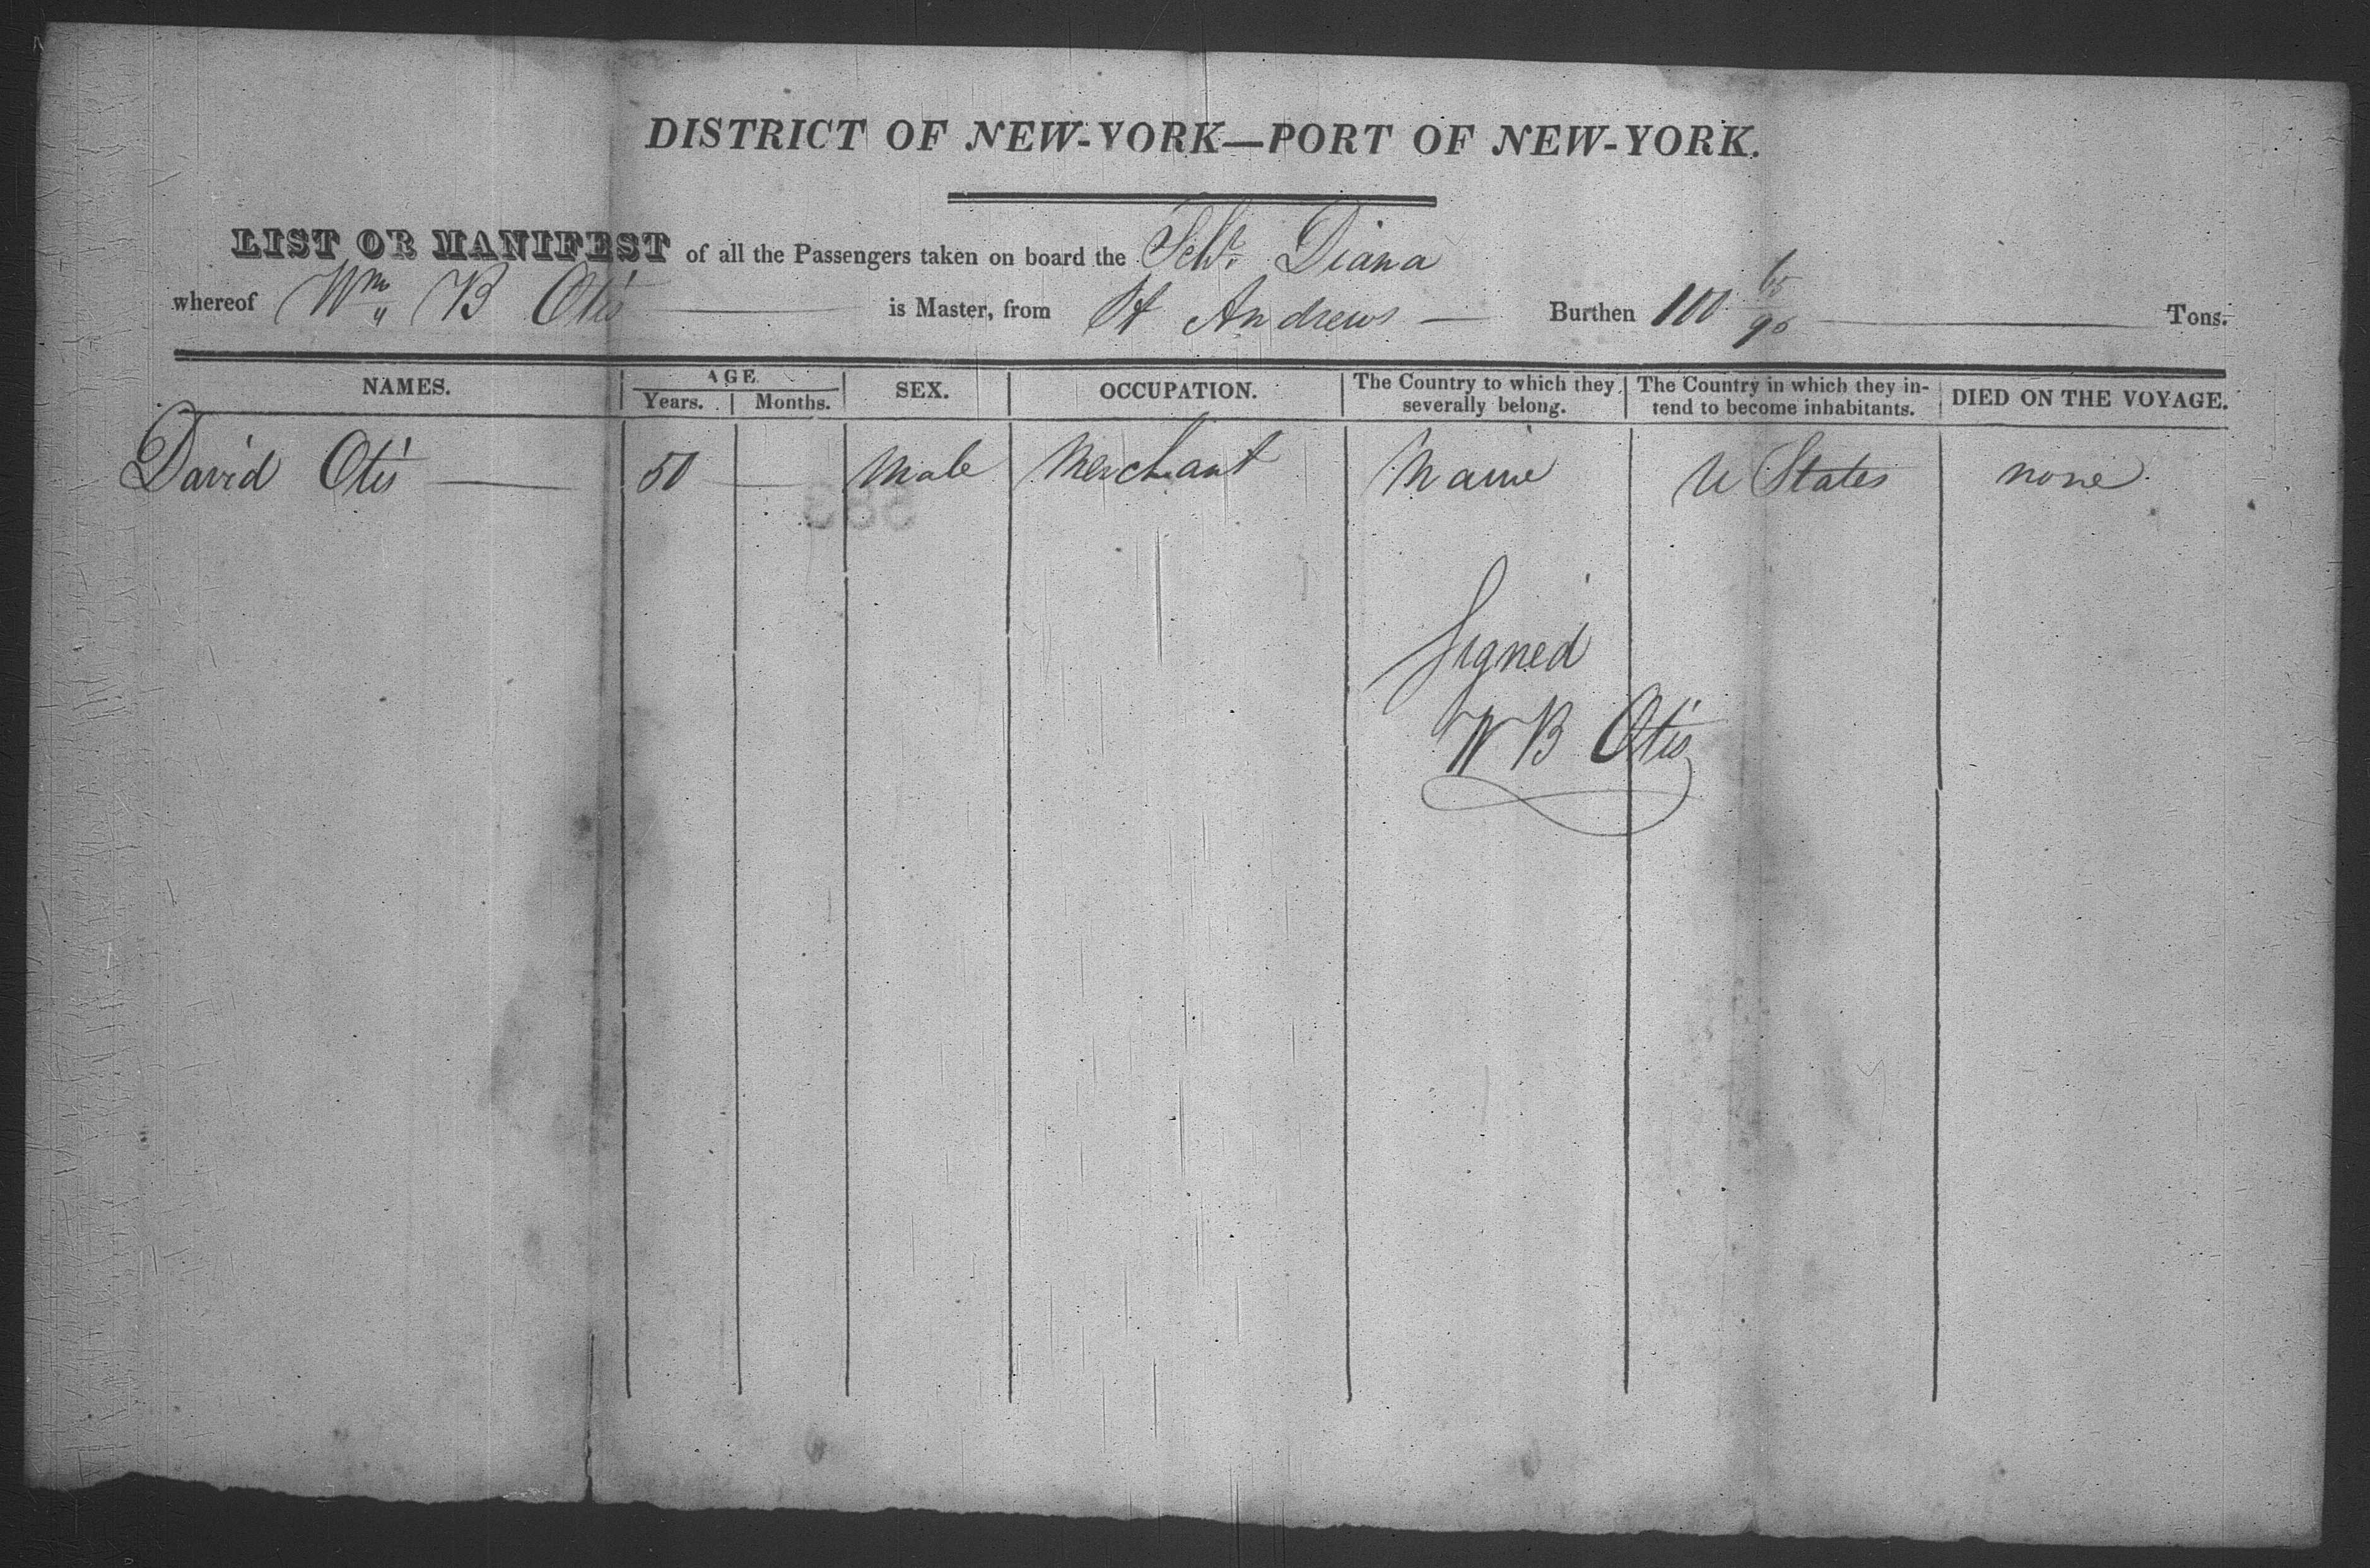 DISTRICT OF NEW-YORK—PORT OF NEW-YORK.
LIST OR MANIFEST of all the Passengers taken on board the Schr. Diana
whereof Wm B Otis is Master, from St Andrews — Burthen 100 65/95 Tons.
NAMES. AGE. SEX. OCCUPATION. The Country to which they severally belong. The Country in which they in-tend to become inhabitants. DIED ON THE VOYAGE.
Years. Months.
David Otis — 50 — Male Merchant Maine U States none
Signed
W B Otis